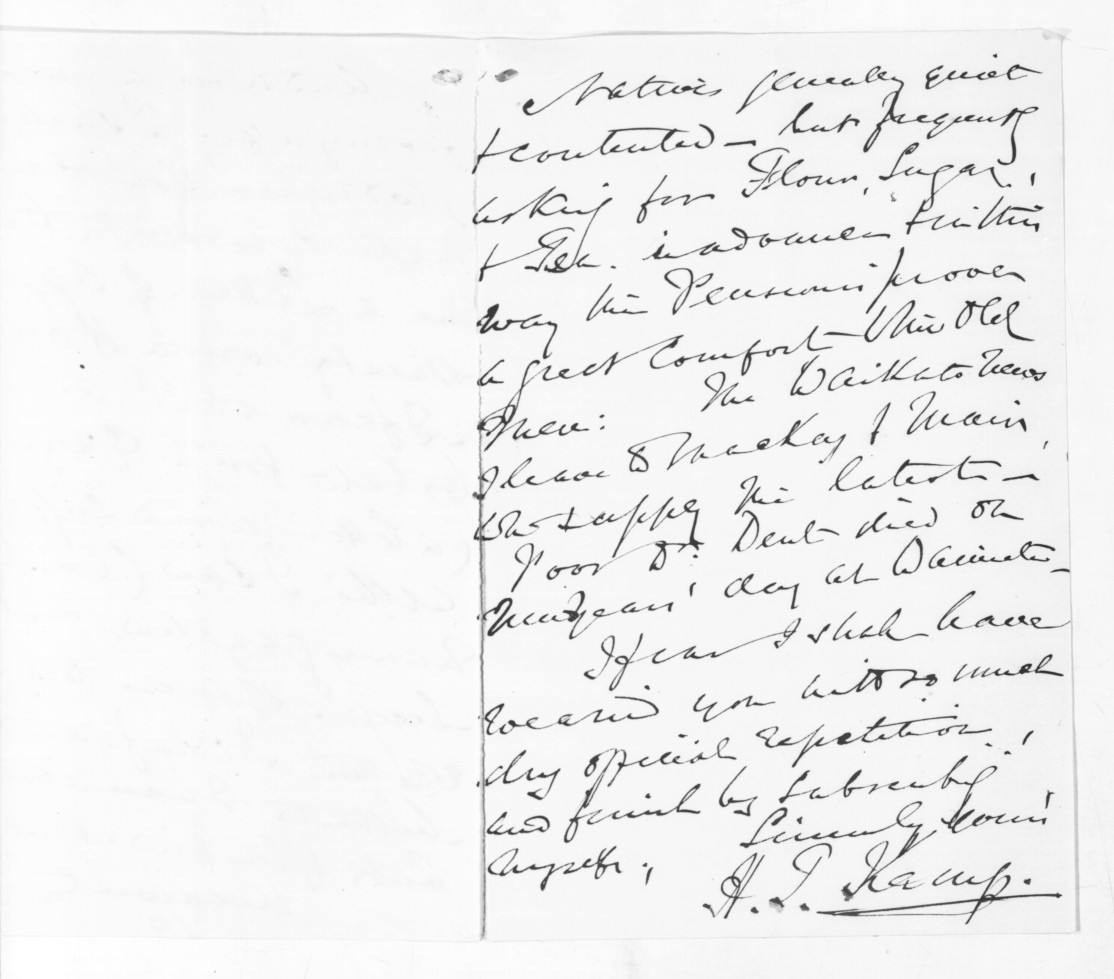 Natives generaly quiet
& contented - but frequently
asking for Flour, Sugar,
& Tea. in advance & in this
way the Pensions prove
a great comfort to the Old
Men: The Waikato News
I leave to Mackay & Main,
who supply the latest -
Poor Dr. Dent died on
New Years' day at Waimate -
I fear I shall have
wearied you with so much
dry official repetition,
and finish by subscribg
myself; Sincerely yours
H. T. Kemp.